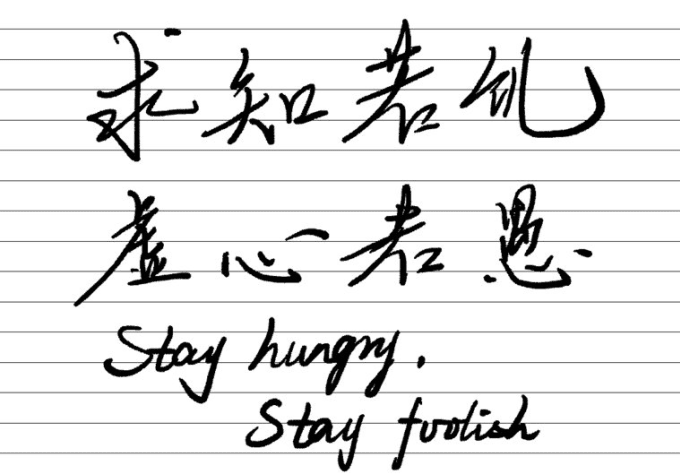 求知若饥
虚心若愚
Stay hungry.
Stay foolish